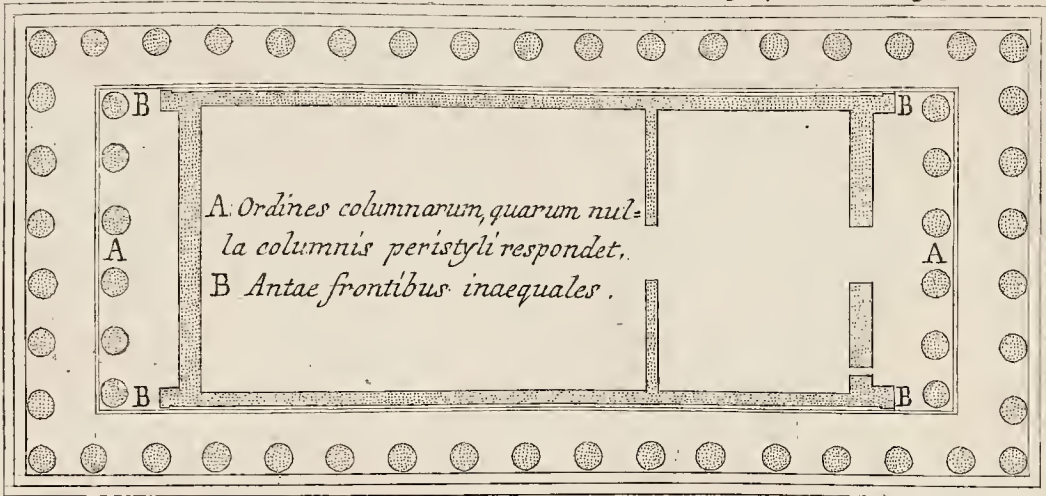 B
B
A: Ordines columnarum, quarum nul=
la columnis peristyli respondet.
A
A
B Antae frontibus inaequales.
B
B